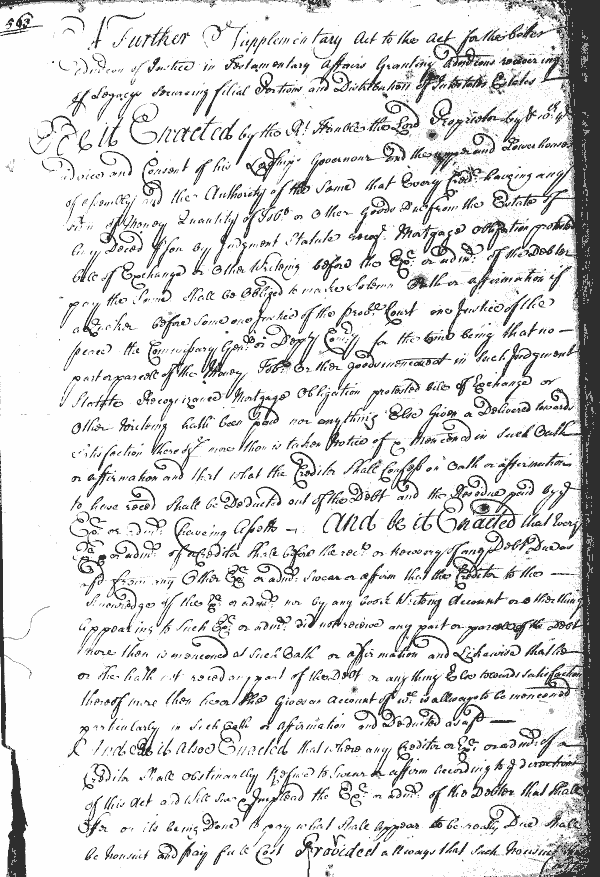 563
A Further Supplementary Act to the Act for the better
Administracon of Justice in Testamentary Affairs Granting Admtrons recovering
of Legacys Securing filial Portions and Distribution of Intestates Estates
Be it Enacted by the Rt. Honble the Lord Proprietor by & wth ye
advice and Consent of his Lordships Governour and the upper and Lower houses
of assembly and the Authority of the Same that Every Credr. haveing any
sum of Money Quantity of Tobo or Other Goods Due from the Estate of
any Deced. p'son by Judgment Statute recog. Mortgage obligation protested
bill of Exchange or Other Writeing before the Exr. or admr. of the Debtor
pay the Same Shall be Obliged to make Solemn Oath or affirmation if
a Quaker before Some one Justice of the Provll. Court one Justice of the
peace the Commissary Genll. or Depty Comry for the time being that no
part or parcell of the Money Tobo. or ther goods mencioned in Such Judgment
Statute Recognizance Mortgage Obligation protested bill of Exchange or
Other Writeing hath been paid nor anything Else Given or Delivered towards
Satisfaction thereof more then is taken Notice of & Mencioned in Such Oath
or affirmation and that what the Creditor Shall Confess on Oath or affirmation
to have reced Shall be Deducted out of the Debt and the Residue paid by ye
Exr. or admr. (haveing Assetts And be it Enacted that Every
Exr. or admr. of a Creditor Shall before the rect. or Recovery of any Debt Due as
afsd from any Other Exr. or admr. Swear or affirm that the Creditor to the
Knowledge of the Exr. or admr. nor by any book Writing Account or other thing
appearing to Such Exr. or admr. did not receive any part or parcell of the Debt
more then is mencioned as Such Oath or affirmation and Likewise that he
or she hath not reced any part of the Debt or any thing Else towards Satisfaction
thereof more then he or she Gives an Account of wch. is allways to be mencioned
particularly in Such Oath or Affirmation and Deducted as afsd
And be it alsoe Enacted that where any Creditor or Exr. or admr. of a
Creditor Shall obstinately Refuse to Swear or affirm According to ye directions
of this Act and will Sue or Implead the Exr. or admr. of the Debtor that shall
Offer on its being Done to pay what Shall appear to be really Due Shall
be Nonsuit and pay full Cost Provided allways that Such Nonsuit